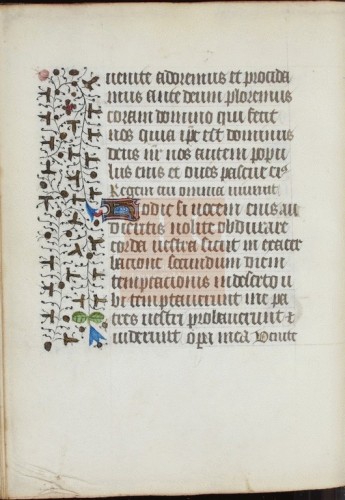 uenite adoremus et procida
mus ante deum ploremus
coram domino qui fecit
nos quia ip̄e est dominus
deus nr̄ nos autem popu
lus eius et oues pascue eiꝰ
Regem cui omnia uiuunt
Hodie si uocem eius au
dieritis nolite obdurare
corda uestra sicut in exacer
bacione secundum diem
temptacionis in deserto u
bi temptauerunt me pa
tres uestri probauerunt ⁊
uiderunt oꝑa mea Venite